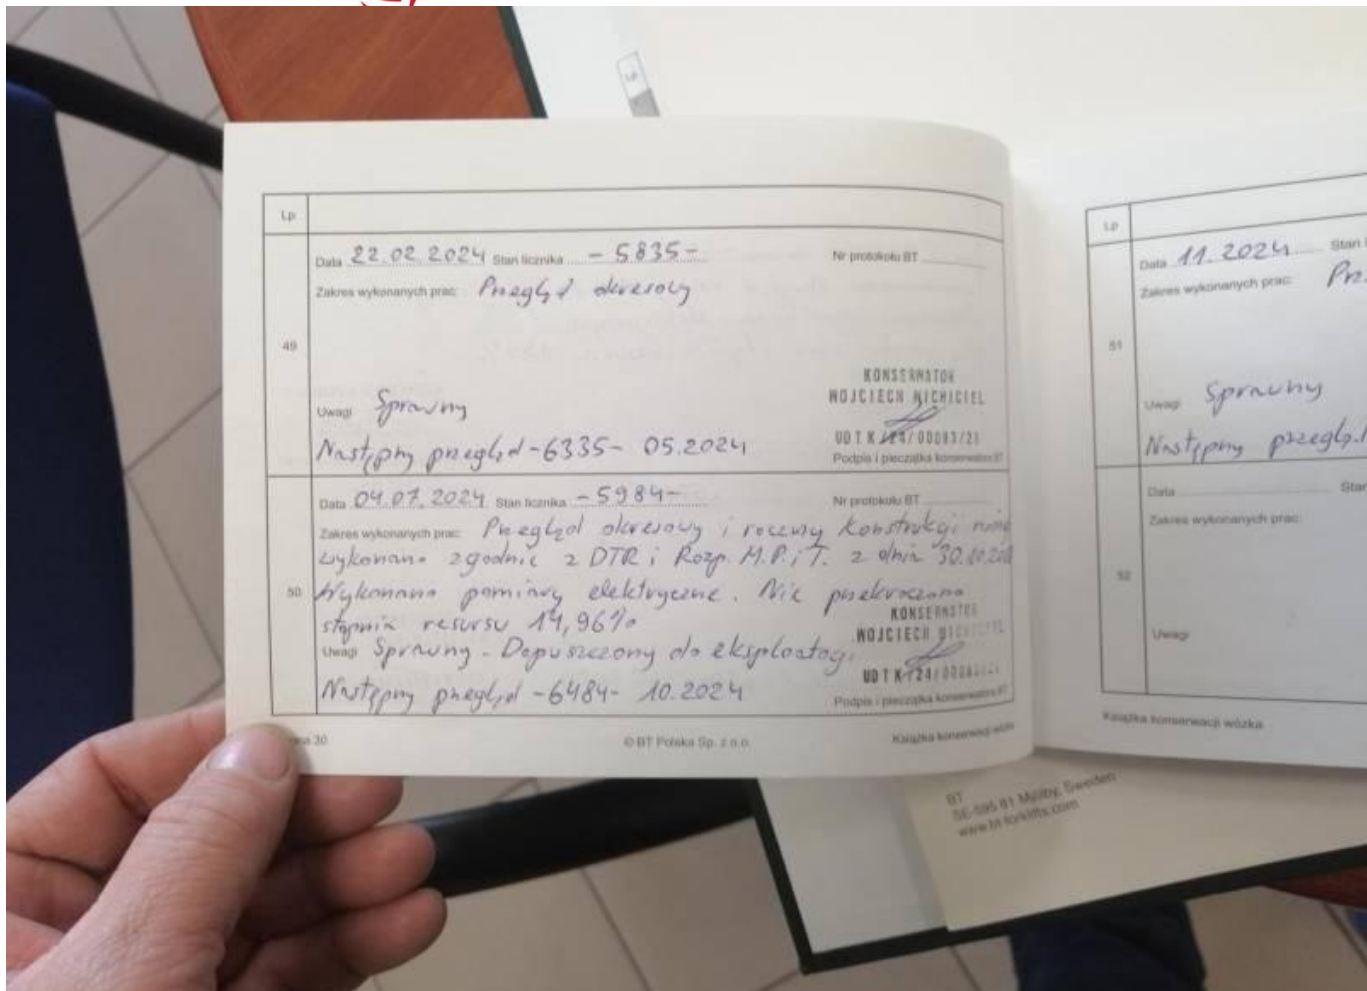 Lp
Data 22.02.2024 Stan licznika - 5835 - Nr protokołu BT
Zakres wykonanych prac: Przegląd okresowy
49
KONSERWATOR
WOJCIECH
Uwagi Sprawny
UDT K
Następny przegląd - 6335 - 05.2024
Podpis i pieczątka konserwatora BT
Data 04.07.2024 Stan licznika - 5984 - Nr protokołu BT
Zakres wykonanych prac: Przegląd okresowy i roczny konstrukcji
wykonano zgodnie z DTR i Rozp. M.P.i T. z dnia 30.10.
50
Wykonano pomiary elektryczne. Nie przekroczono
KONSERWATOR
stopnia resursu 14,96%
WOJCIECH
Uwagi Sprawny - Dopuszczony do eksploatacji
UDT K
Następny przegląd - 6484 - 10.2024
Podpis i pieczątka konserwatora BT
30
© BT Polska Sp. z o.o.
Książka konserwacji wózka
Lp
Data 11.2024 Stan
Zakres wykonanych prac:
51
Uwagi Sprawny
Następny przegląd
Data
Zakres wykonanych prac:
52
Uwagi
Książka konserwacji wózka
BT
SE-595 81 Mjölby, Sweden
www.bt-forklifts.com